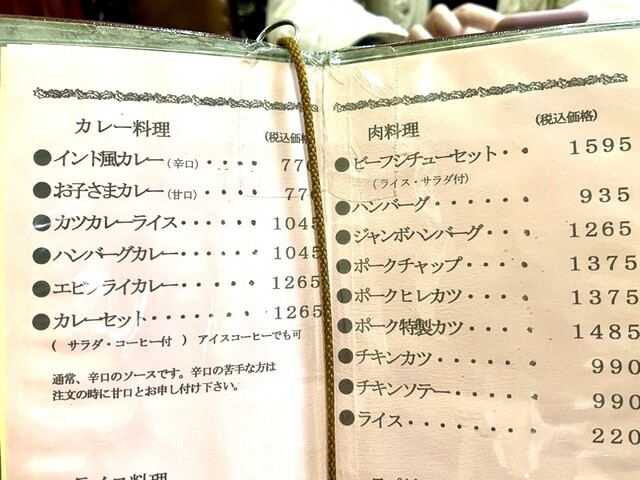 カレー料理
(税込価格
●インド風カレー(辛口)・・・・ 77
●お子さまカレー(甘口)・・・・ 77
●カツカレーライス・・・・・・ 1045
●ハンバーグカレー・・・・・・ 1045
●エビフライカレー・・・・・・ 1265
●カレーセット・・・・・・・・ 1265
( サラダ・コーヒー付 ) アイスコーヒーでも可
通常、辛口のソースです。辛口の苦手な方は
注文の時に甘口とお申し付け下さい。
ライス料理
肉料理
(税込価格)
●ビーフシチューセット・・ 1595
(ライス・サラダ付)
●ハンバーグ・・・・・ 935
●ジャンボハンバーグ・・・ 1265
●ポークチャップ・・・・ 1375
●ポークヒレカツ・・・・ 1375
●ポーク特製カツ・・・・ 1485
●チキンカツ・・・・・ 990
●チキンソテー・・・・ 990
●ライス・・・・・・・ 220